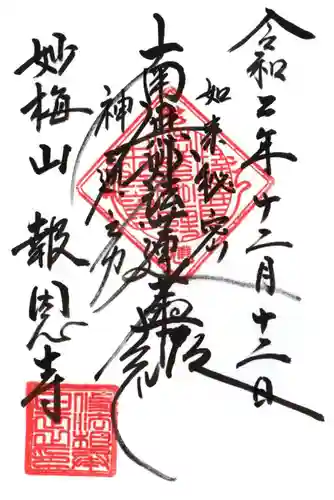 令和二年十二月十三日
如来秘密
南無妙法蓮華経
神通之力
妙梅山 報恩寺